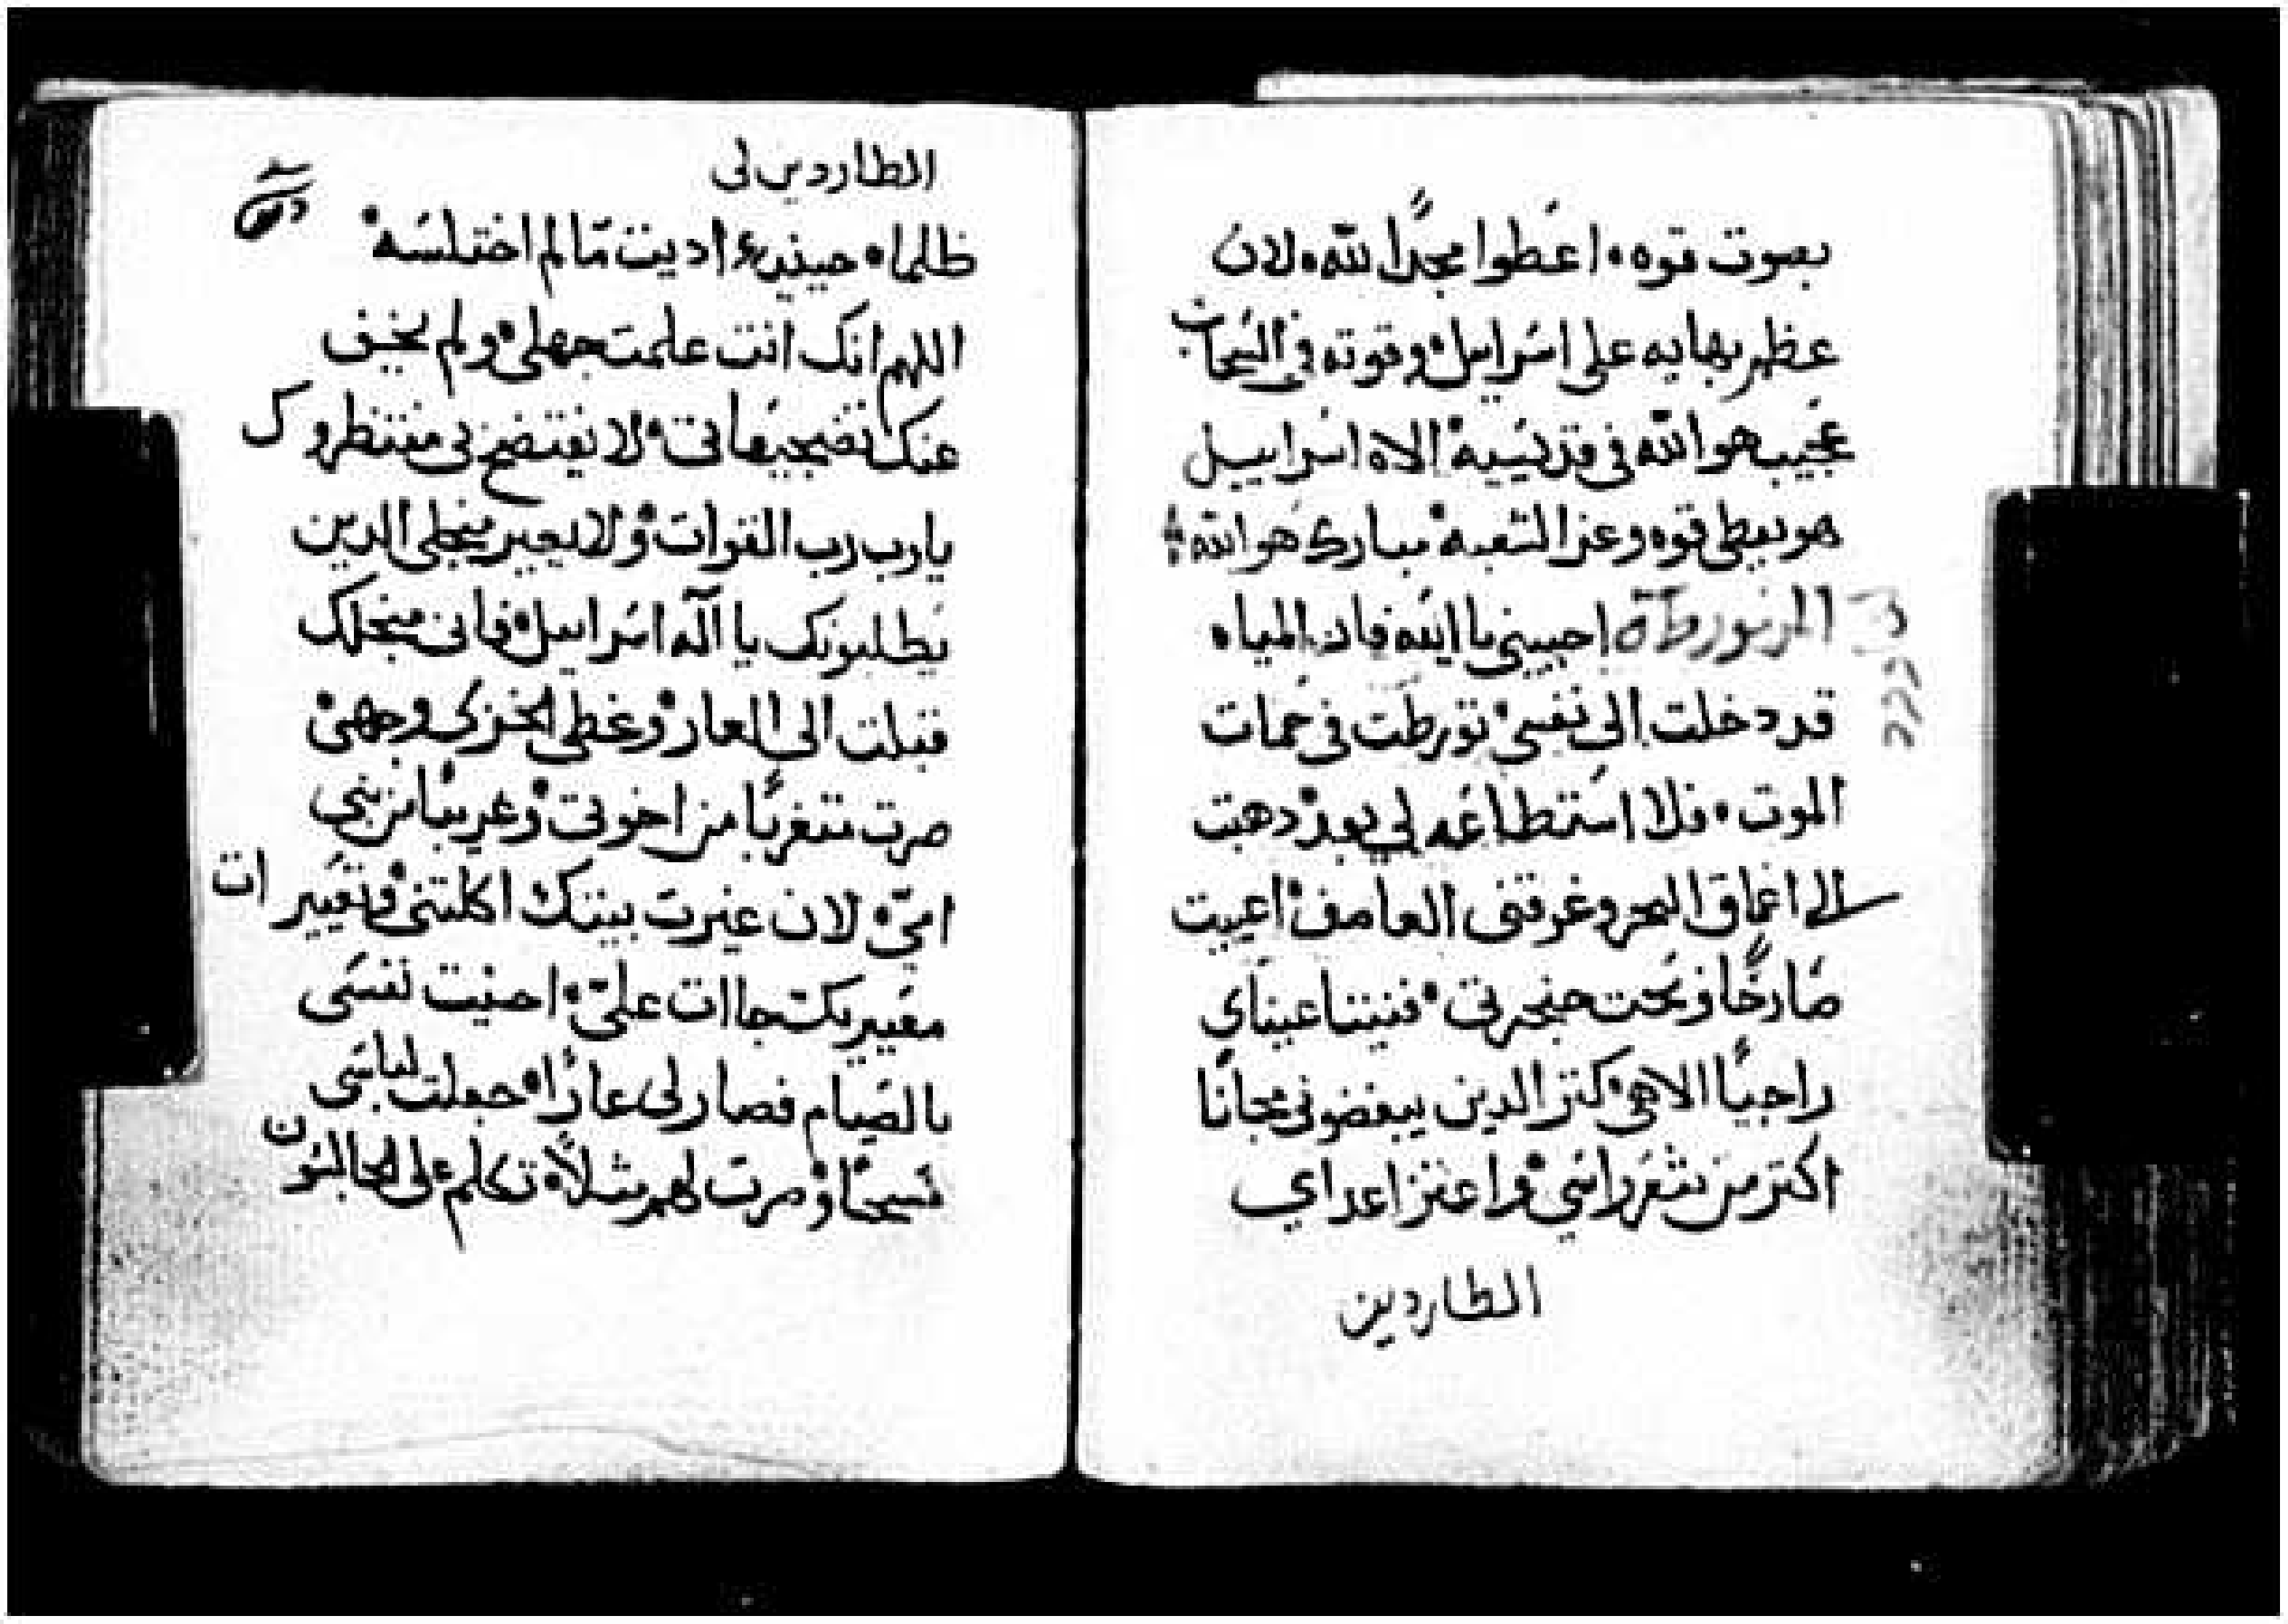 بصوت قوه، اعطوا مجدًا لله، لان
عظم بهايه على اسراييل، وقوته في السحاب
عجيب هو الله في قديسيه، الاه اسراييل
هو يعطى قوه وعز الشعبه، مبارك هو الله
المزمور احييني يا الله فان المياه
قد دخلت الى نفسي، تورطت في حمات
الموت، فلا استطاعه لي بعد، دهبت
الى اعماق البحر وغرقتنى العاصف، اعييت
صارخًا وبحت حنجرتى، فنيتا عيناي
راجيًا الاهي، كتر الدين يبغضونى مجانًا
اكتر من شعر راسي، واعتز اعداي
الطاردين
الطاردين لى
ظلما، حينيد اديت ما لم اختلسه،
اللهم انك انت علمت جهلى، ولم يخف
عنك لا يفتضح بى منتظروك
يارب رب القوات، ولا يعير منجلى الدين
يطلبونك يا آله اسراييل، فانى منجلك
قبلت الى العار، وغطى الخزى وجهى،
صرت متغربًا من اخوتى، وغريبًا من بنى
امىّ، لان غيرت بيتك اكلتنى، وتعييرات
معيريك جاات علىّ، احنيت نفسى
بالصيام فصار لى عارًا، جعلت لباسى
مسحًا، وصرت لهم مثلاً، تكلم على الجالسون